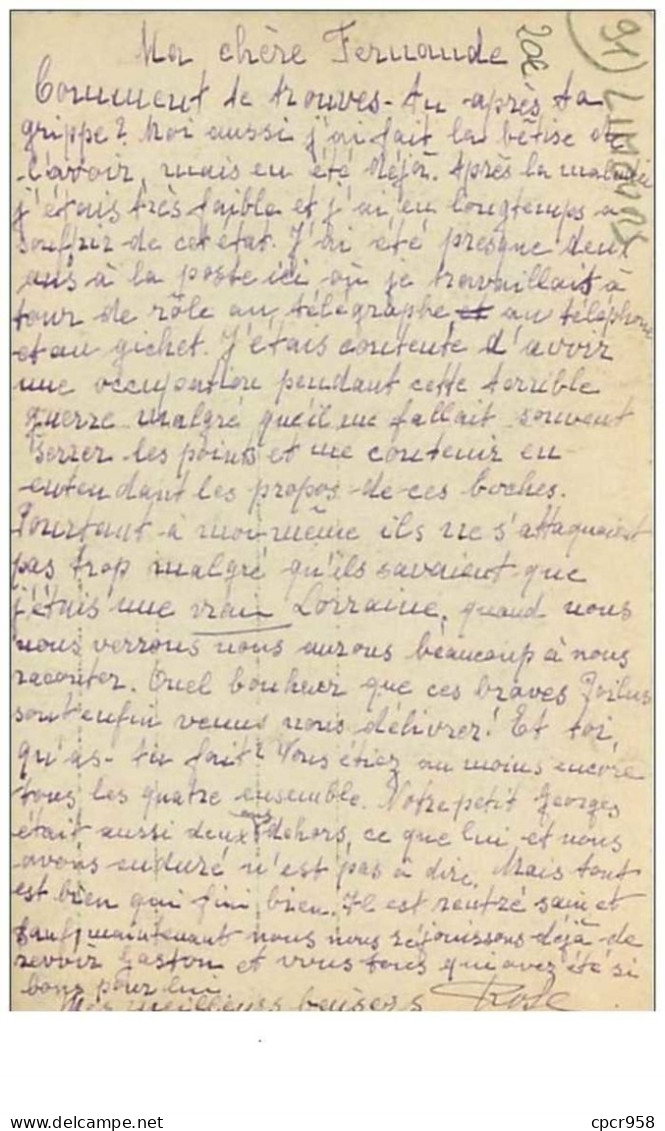 Ma chère Fernande
20€
91) LIMOURS
Comment te trouves-tu après ta
grippe? Moi aussi j'ai fait la bêtise de
l'avoir, mais en été déjà. Après la maladie
j'étais très faible et j'ai eu longtemps a
souffrir de cet état. J'ai été presque deux
ans à la poste ici où je travaillais à
tour de rôle au télégraphe et au téléphone
et au gichet. J'étais contente d'avoir
une occupation pendant cette terrible
guerre malgré qu'il me fallait souvent
serrer les points et me contenir en
entendant les propos de ces boches.
Pourtant à moi-même ils ne s'attaquaient
pas trop malgré qu'ils savaient que
j'étais une vraie Lorraine, quand nous
nous verrons nous aurons beaucoup à nous
raconter. Quel bonheur que ces braves Poilus
sont enfin venus nous délivrer! Et toi,
qu'as-tu fait? Vous étiez au moins encore
tous les quatre ensemble. Notre petit Georges
était aussi deux ans dehors, ce que lui et nous
avons enduré n'est pas à dire. Mais tout
est bien qui fini bien. Il est rentré sain et
sauf, maintenant nous nous réjouissons déjà de
revoir Gaston et vous tous qui avez été si
bons pour lui
Mes meilleurs baisers Rose
cpcr958